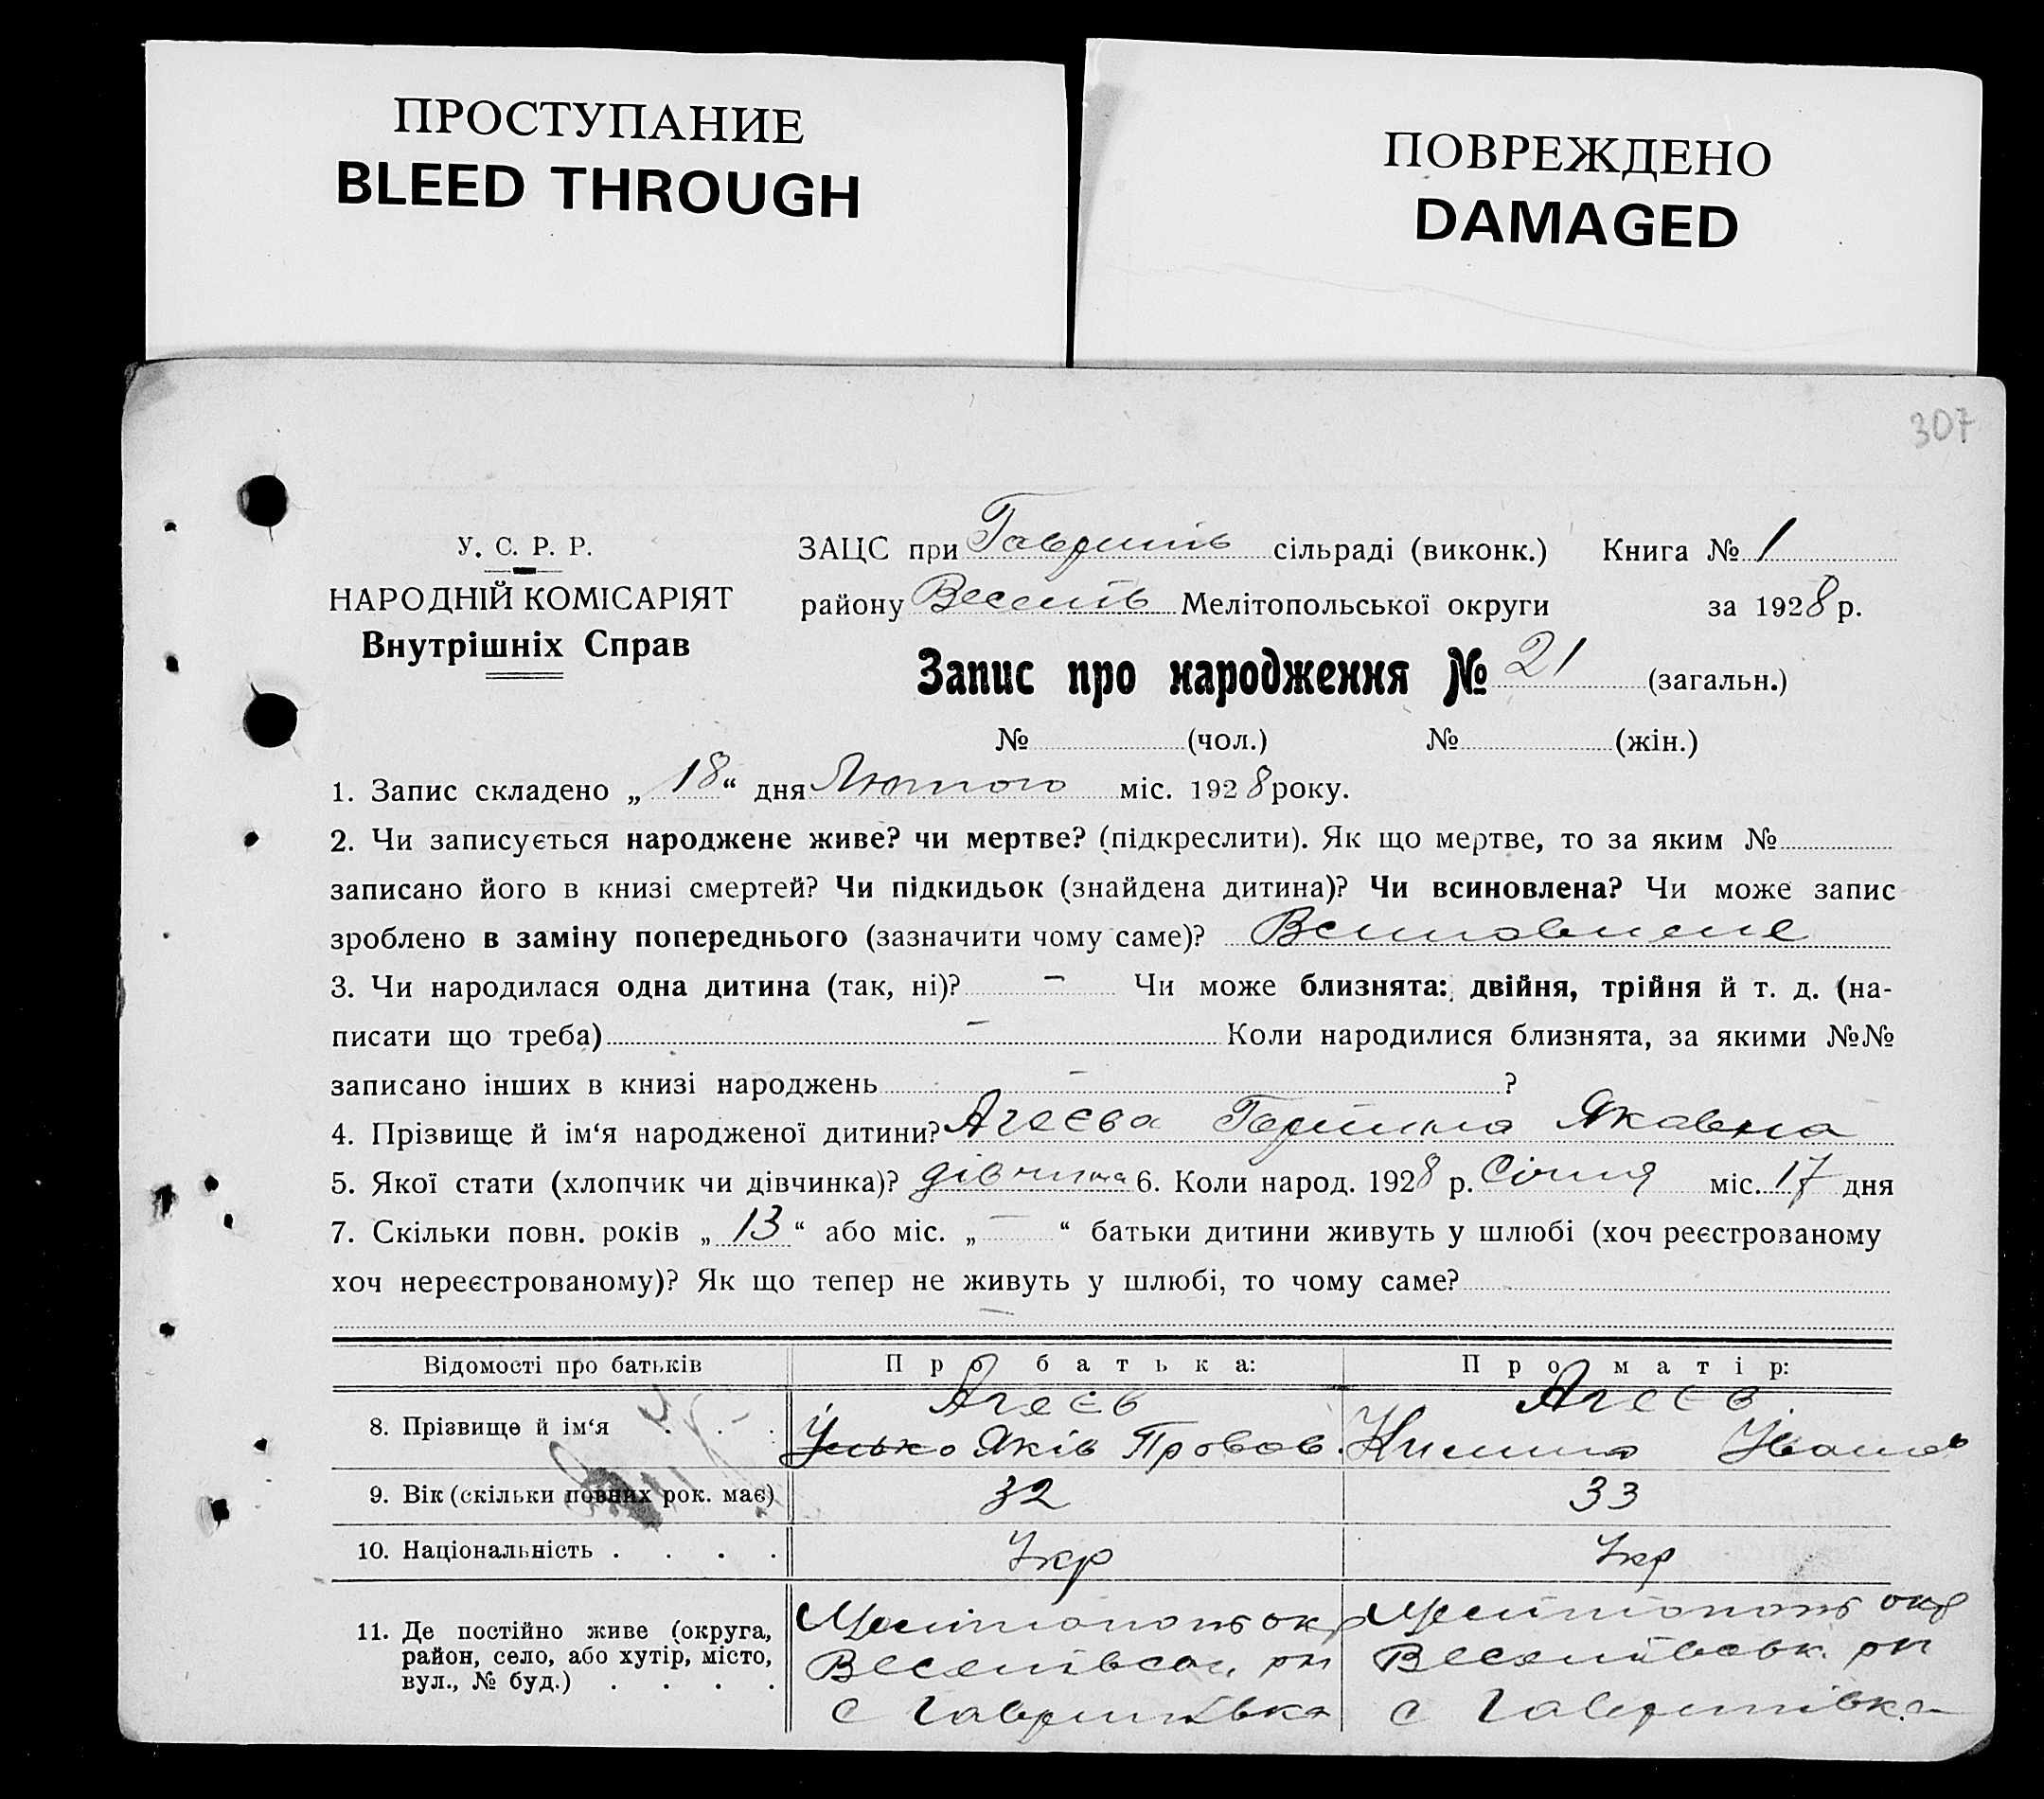 ПРОСТУПАНИЕ
BLEED THROUGH
ПОВРЕЖДЕНО
DAMAGED
307
У. С. Р. Р.
НАРОДНІЙ КОМІСАРІЯТ
Внутрішніх Справ
ЗАЦС при Гаврилів сільраді (виконк.) Книга № 1
району Веселів Мелітопольської округи за 1928 р.
Запис про народження № 21 (загальн.)
№ (чол.) № (жін.)
1. Запис складено „18“ дня Лютого міс. 1928 року.
2. Чи записується народжене живе? чи мертве? (підкреслити). Як що мертве, то за яким №
записано його в книзі смертей? Чи підкидьок (знайдена дитина)? Чи всиновлена? Чи може запис
зроблено в заміну попереднього (зазначити чому саме)?
3. Чи народилася одна дитина (так, ні)? — Чи може близнята: двійня, трійня й т. д. (на-
писати що треба) — Коли народилися близнята, за якими №№
записано інших в книзі народжень — ?
4. Прізвище й ім‘я народженої дитини? Агеєва Яковна
5. Якої стати (хлопчик чи дівчинка)? дівчина 6. Коли народ. 1928 р. Січня міс. 17 дня
7. Скільки повн. років „13“ або міс. „—“ батьки дитини живуть у шлюбі (хоч реєстрованому
хоч нереєстрованому)? Як що тепер не живуть у шлюбі, то чому саме?
—
Відомості про батьків Про батька: Про матір:
8. Прізвище й ім‘я . . .
Агеєв
Яків
Агеєв
Іванов
9. Вік (скільки повних рок. має) 32 33
10. Національність . . . . Укр Укр
11. Де постійно живе (округа,
район, село, або хутір, місто,
вул., № буд.) . . . .
Мелітополь окр
Веселівськ. рн
с Гаврилівка
Мелітополь окр
Веселівськ. рн
с Гаврилівка